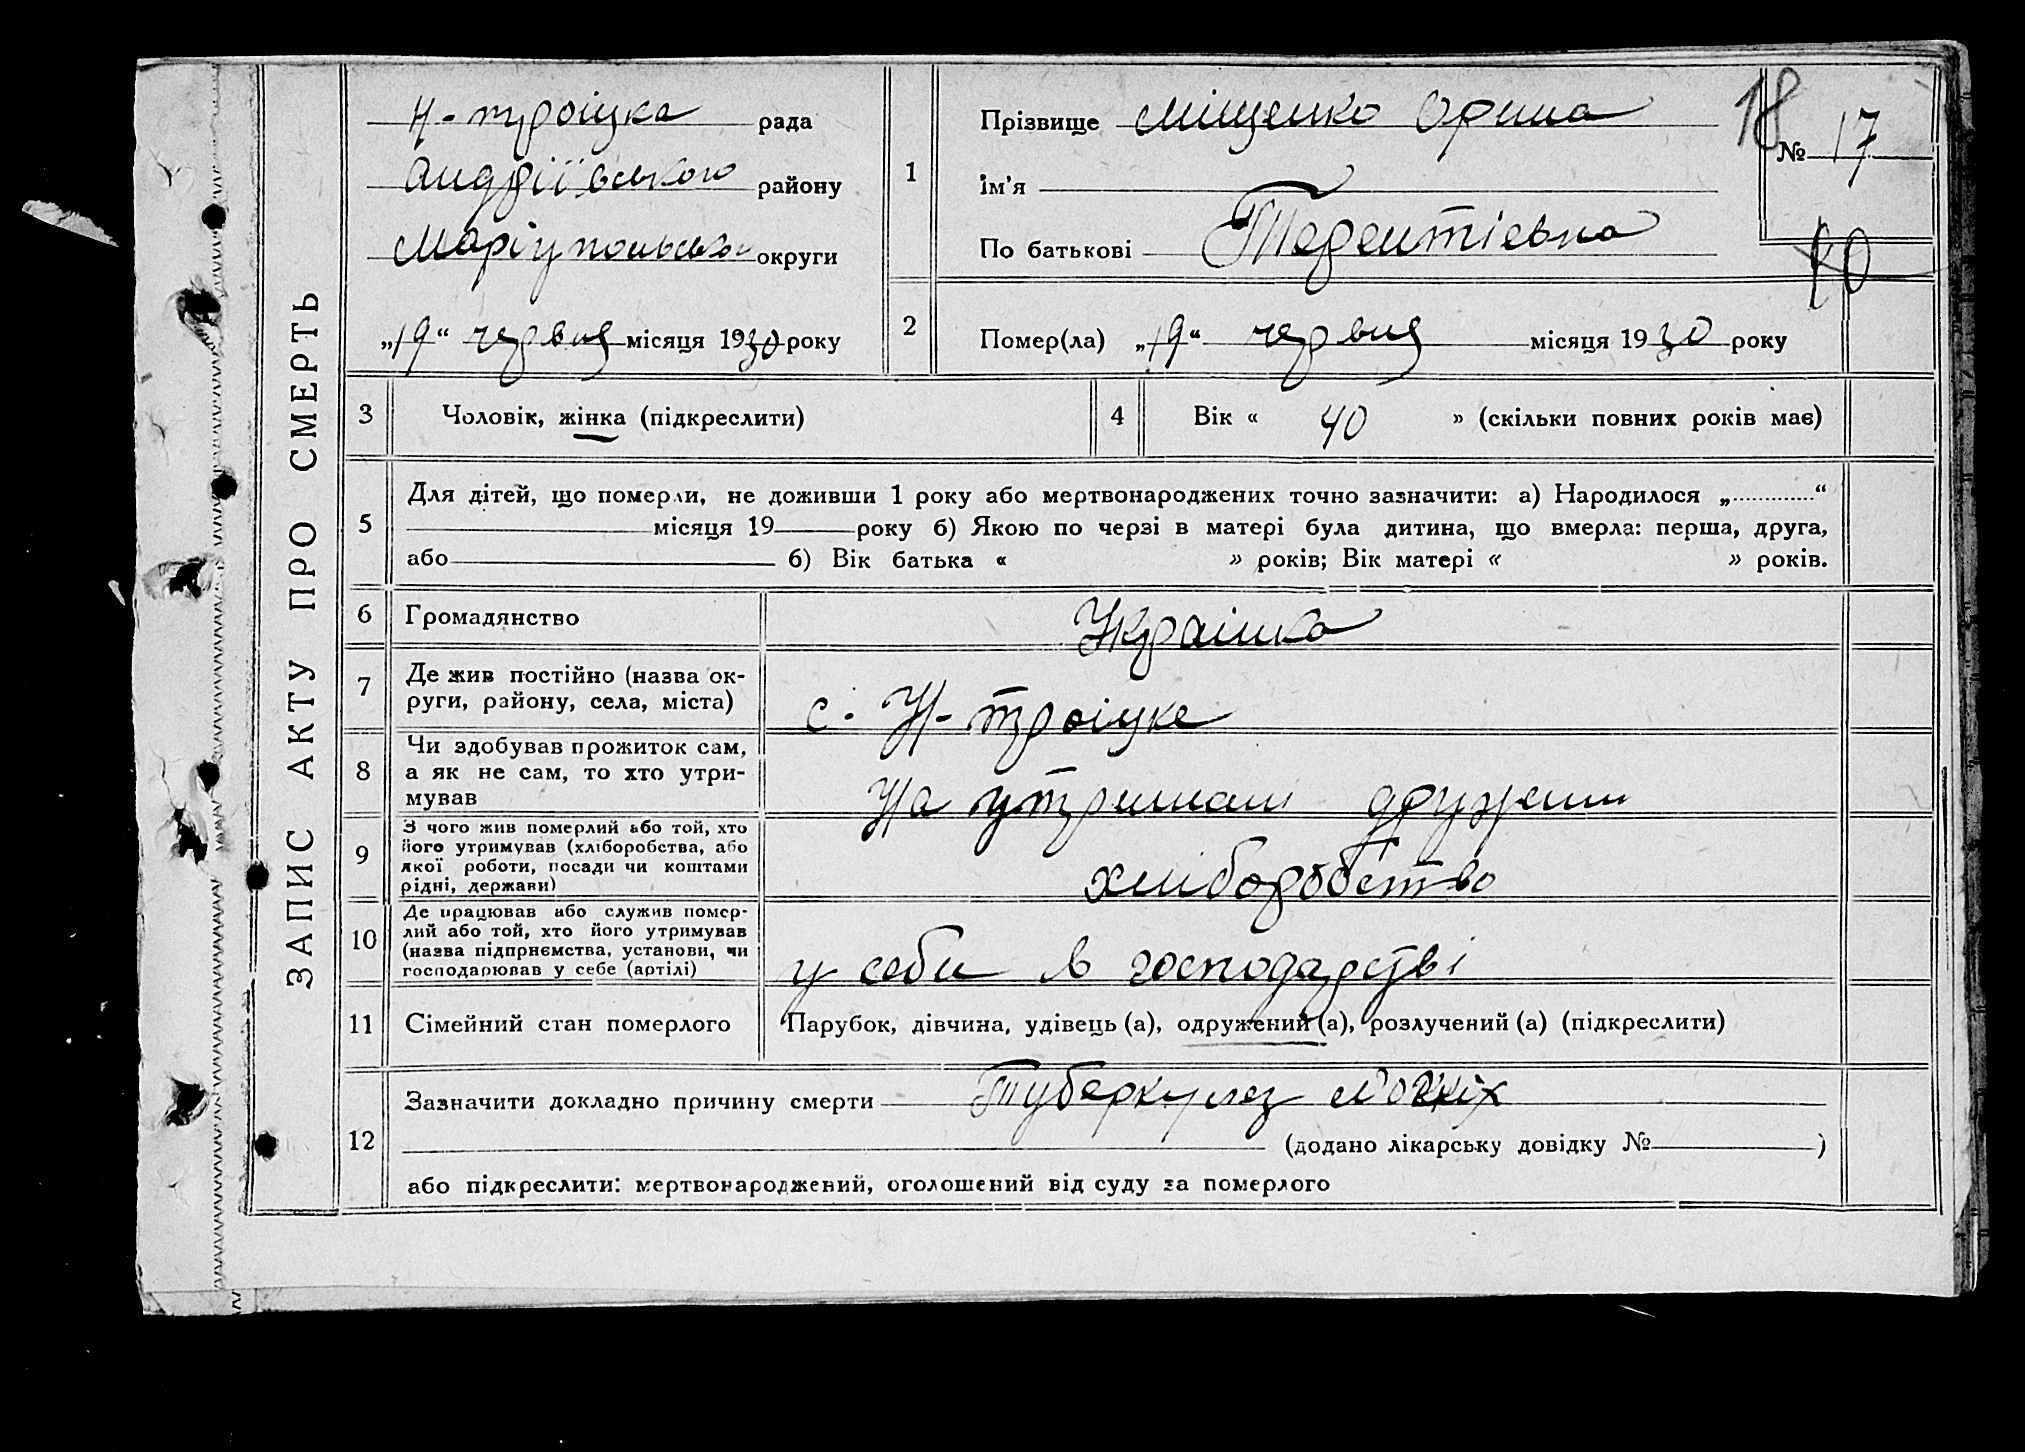 ЗАПИС АКТУ ПРО СМЕРТЬ
Н-троіцка рада
Андріївського району
Маріупольсько округи
„19“ червня місяця 1930 року
1
Прізвище Міщенко Орина
Ім'я
По батькові Терентіевна
18
№ 17
2
Помер(ла) „19“ червня місяця 1930 року
3 Чоловік, жінка (підкреслити)
4 Вік « 40 » (скільки повних років має)
5
Для дітей, що померли, не доживши 1 року або мертвонароджених точно зазначити: а) Народилося „.............“
місяця 19 року б) Якою по черзі в матері була дитина, що вмерла: перша, друга,
або б) Вік батька « » років; Вік матері « » років.
6 Громадянство Украінка
7
Де жив постійно (назва ок-
руги, району, села, міста)
с. Н-троіцке
8
Чи здобував прожиток сам,
а як не сам, то хто утри-
мував
На утримані дружени
9
З чого жив померлий або той, хто
його утримував (хліборобства, або
якої роботи, посади чи коштами
рідні, держави)
хліборобство
10
Де працював або служив помер-
лий або той, хто його утримував
(назва підприємства, установи, чи
господарював у себе (артілі)
у себе в господарстві
11 Сімейний стан померлого Парубок, дівчина, удівець (а), одружений (а), розлучений (а) (підкреслити)
12
Зазначити докладно причину смерти Туберкульоз
(додано лікарську довідку № )
або підкреслити: мертвонароджений, оголошений від суду за померлого